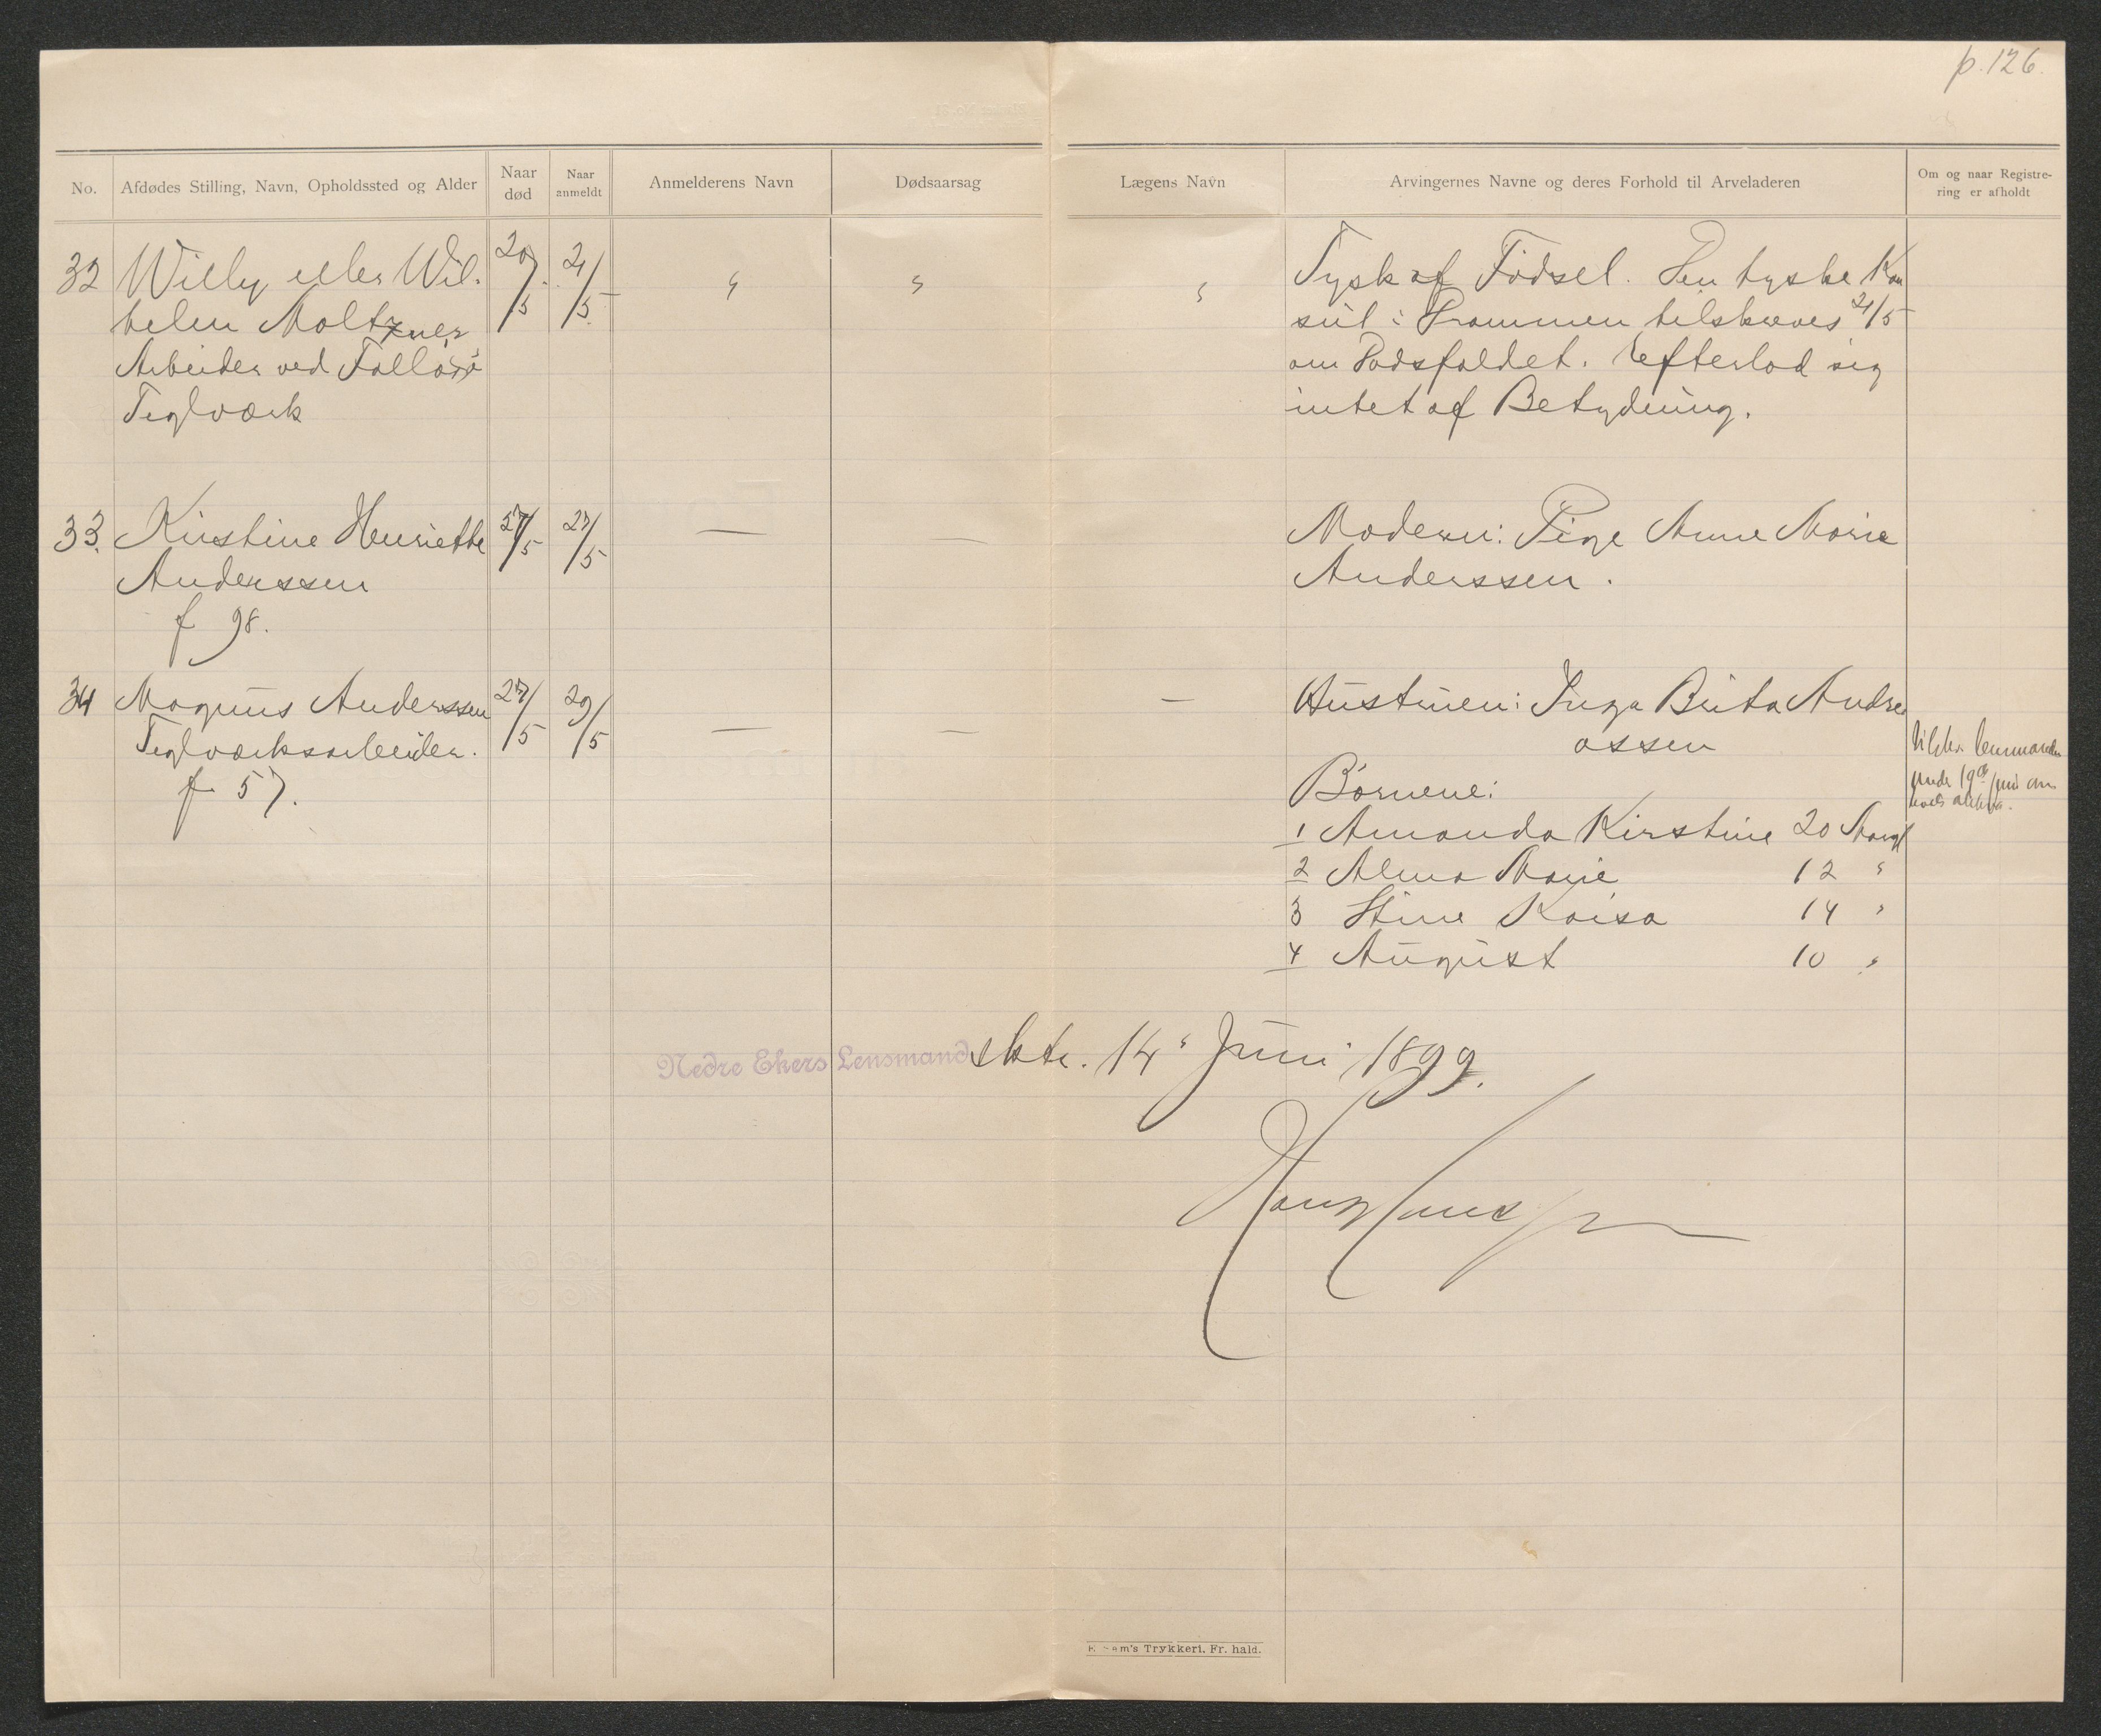 p. 126.
No.
Afdødes Stilling, Navn, Opholdssted og Alder
Naar død
Naar anmeldt
Anmelderens Navn
Dødsaarsag
Lægens Navn
Arvingernes Navne og deres Forhold til Arveladeren
Om og naar Registre-
ring er afholdt
32 Willy eller Wil- 20/5 21/5 " " " Tysk af Fødsel. Den tyske Kon
helm Moltzner sul i Drammen tilskreves 21/5
Arbeider ved Follørø om Dødsfaldet. Efterlod sig
Teglværk intet af Betydning.
33. Kirstine Henriette 27/5 27/5 — — Moderen: Pige Anne Marie
Anderssen Anderssen.
f 98.
34 Magnus Anderssen 27/5 29/5 — — — Hustruen: Inga Brita Andre
Teglværksarbeider. assen
f 57. Børnene:
1 Amanda Kirstine 20 Aar gl
2 Alma Marie 12 "
3 Stine Kaisa 14 "
4 August 10 "
Tilskr. lensmanden
under 19de juni om
Nedre Ekers Lensmandsktr. 14' Juni 1899.
Hans Hansen
's Trykkeri. Fr. hald.